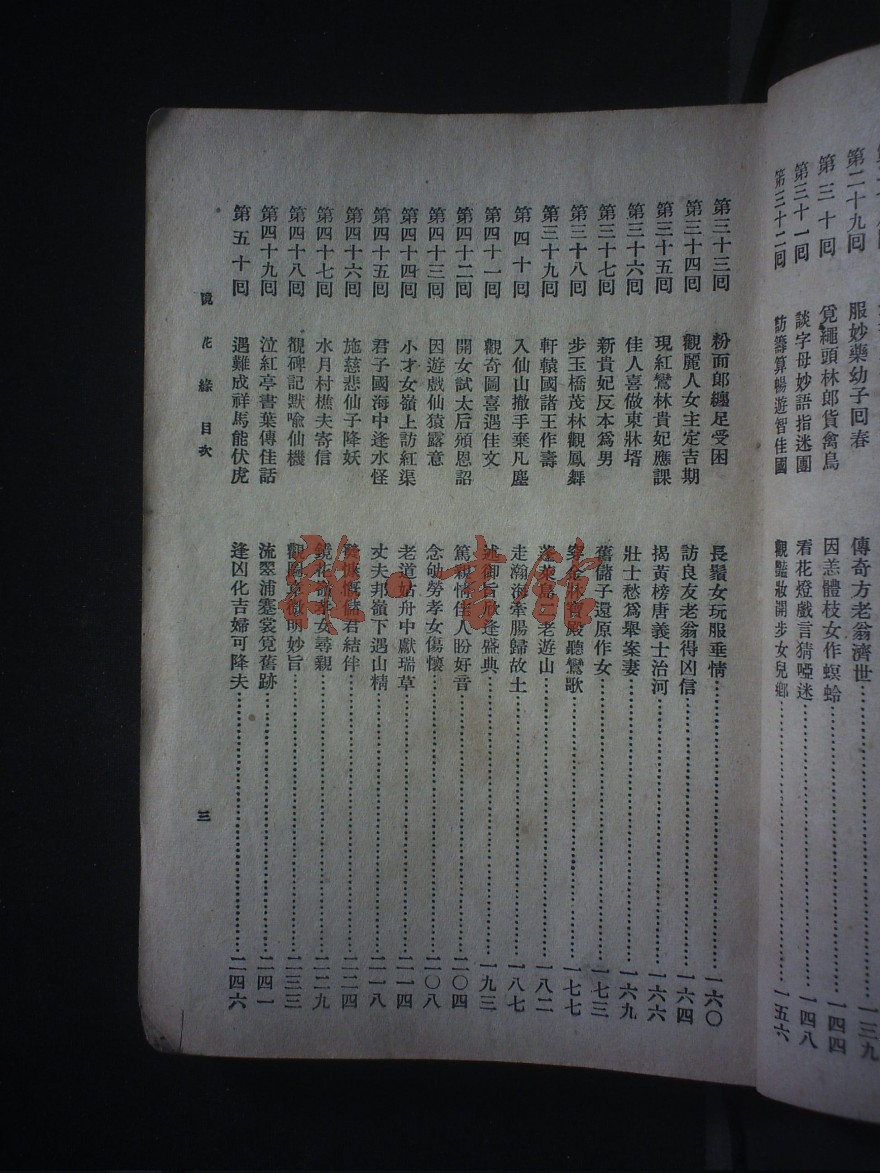 第二十九囘 服妙藥幼子回春 傳奇方老翁濟世 一三九
第三十囘 覓蠅頭林郎貨禽鳥 因恙體枝女作螟蛉 一四四
第三十一囘 談字母妙語指迷團 看花燈戲言猜啞迷 一四八
第三十二囘 訪籌算暢遊智佳國 觀豔妝閒步女兒鄉 一五六
第三十三囘 粉面郎纏足受困 長鬚女玩服垂情 一六〇
第三十四囘 觀麗人女主定吉期 訪良友老翁得凶信 一六四
第三十五囘 現紅鸞林貴妃應課 揭黃榜唐義士治河 一六六
第三十六囘 佳人喜做東牀壻 壯士愁爲舉案妻 一六九
第三十七囘 新貴妃反本爲男 舊儲子還原作女 一七三
第三十八囘 步玉橋茂林觀鳳舞 穿金殿聽鸞歌 一七七
第三十九囘 軒轅國諸王作壽 蓬萊島老遊山 一八二
第四十囘 入仙山撤手棄凡塵 走瀚海牽腸歸故土 一八七
第四十一囘 觀奇圖喜遇佳文 述御旨欣逢盛典 一九三
第四十二囘 開女試太后頒恩詔 篤親情佳人盼好音 二〇四
第四十三囘 因遊戲仙猿露意 念劬勞孝女傷懷 二〇八
第四十四囘 小才女嶺上訪紅渠 老道姑舟中獻瑞草 二一四
第四十五囘 君子國海中逢水怪 丈夫邦嶺下遇山精 二一八
第四十六囘 施慈悲仙子降妖 發慷慨儲君結伴 二二四
第四十七囘 水月村樵夫寄信 鏡花嶺孝女尋親 二二九
第四十八囘 覩碑記默喻仙機 觀圖章微明妙旨 二三三
第四十九囘 泣紅亭書葉傳佳話 流翠浦蹇裳覓舊跡 二四一
第五十囘 遇難成祥馬能伏虎 逢凶化吉婦可降夫 二四六
鏡花緣 目次
三